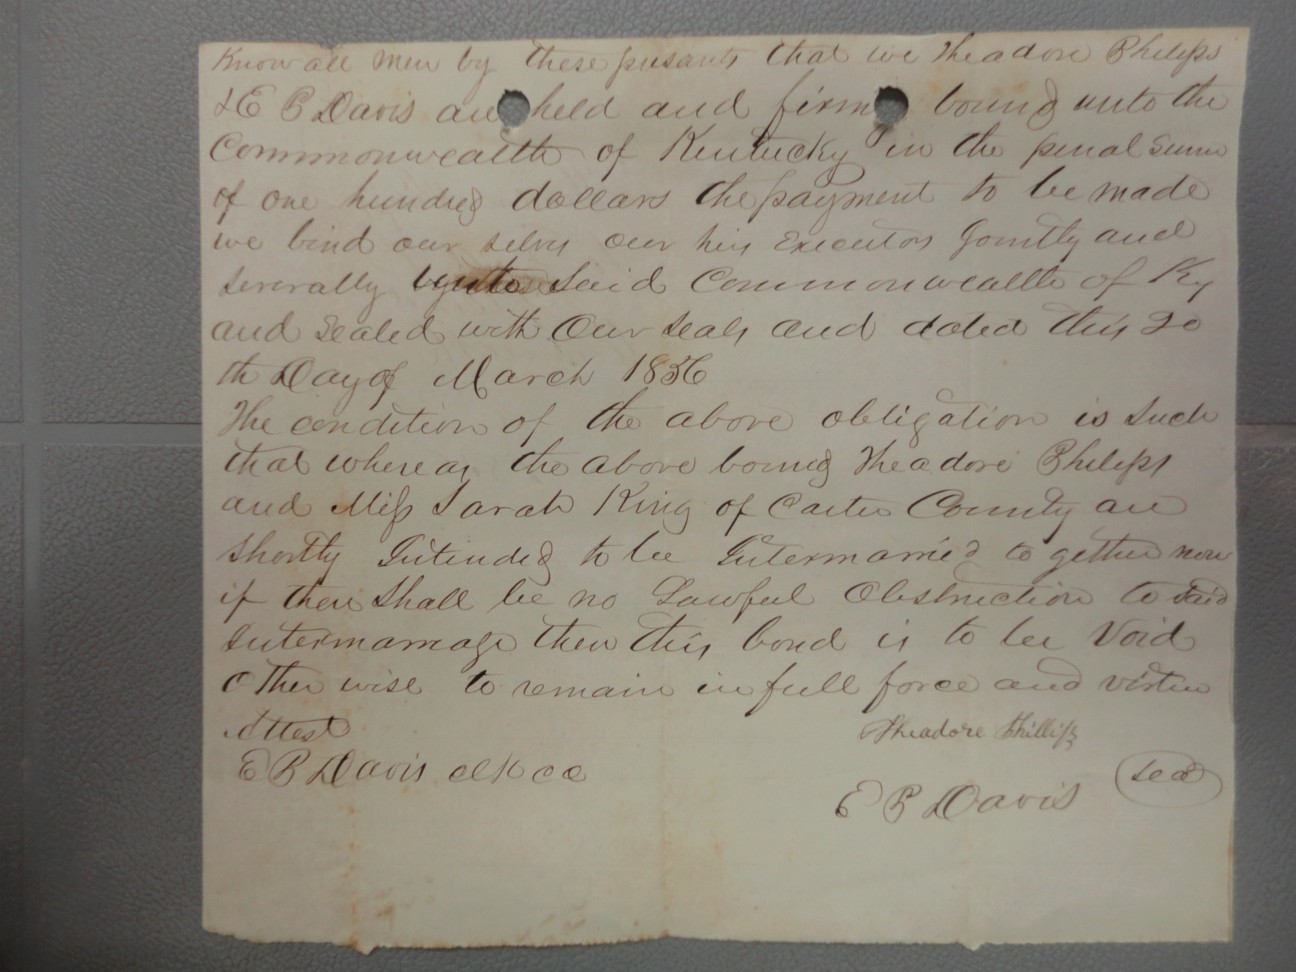 Know all men by these presants that we Theadore Philips
& E B Davis are held and firm bound unto the
Commonwealth of Kentucky in the penal Sum
of one hundred dollars the payment to be made
we bind our selvs our hirs Executors Jointly and
Severally unto Said Commonwealth of Ky
and Sealed with Our Seals and dated this 20
th Day of March 1856
The condition of the above obligation is Such
that whereas the above bound Theadore Philips
and Miss Sarah King of Carter County are
Shortly Intended to be Intermarried to gether now
if there Shall be no Lawful Obstruction to Said
Intermarriage then this bond is to be Void
other wise to remain in full force and virtue
Attest Theadore Phillips
E B Davis clk cc
E B Davis Seal